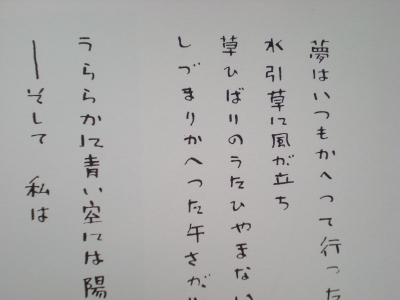 夢はいつもかへつて行った
水引草に風が立ち
草ひばりのうたひやまない
しづまりかへつた午さが
うららかに青い空には陽
――そして 私は